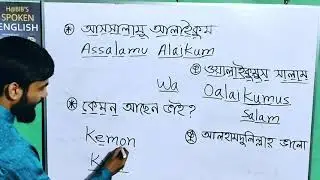 HABIB'S
SPOKEN
ENGLISH
আসসালামু আলাইকুম
Assalamu Alaikum
ওয়ালাইকুমুস সালাম
Wa Oalaikumus
Salam
কেমন আছেন ভাই?
Kemon
K
আলহামদুলিল্লাহ ভালো